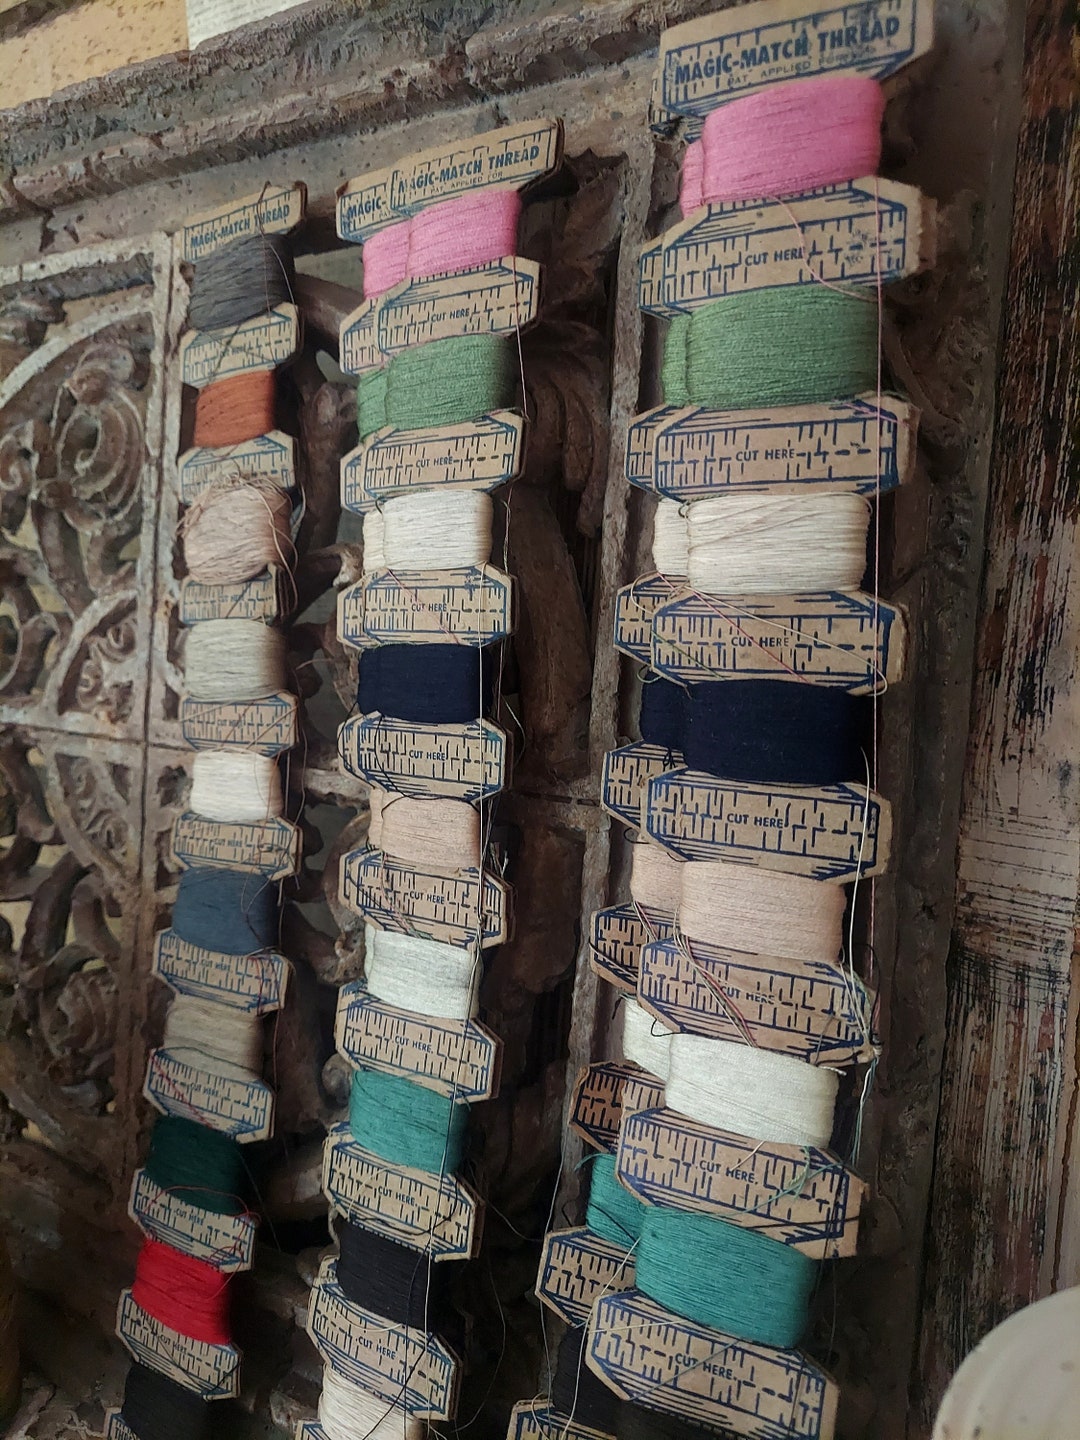 MAGIC-MATCH THREAD
CUT HERE
CUT HERE
CUT HERE
CUT HERE
CUT HERE
CUT HERE
CUT HERE
MAGIC-
MAGIC-MATCH THREAD
PAT. APPLIED FOR
CUT HERE
CUT HERE
CUT HERE
CUT HERE
CUT HERE
CUT HERE
CUT HERE
CUT HERE
MAGIC-MATCH THREAD
PAT. APPLIED FOR
CUT HERE
CUT HERE
CUT HERE
CUT HERE
CUT HERE
CUT HERE
CUT HERE